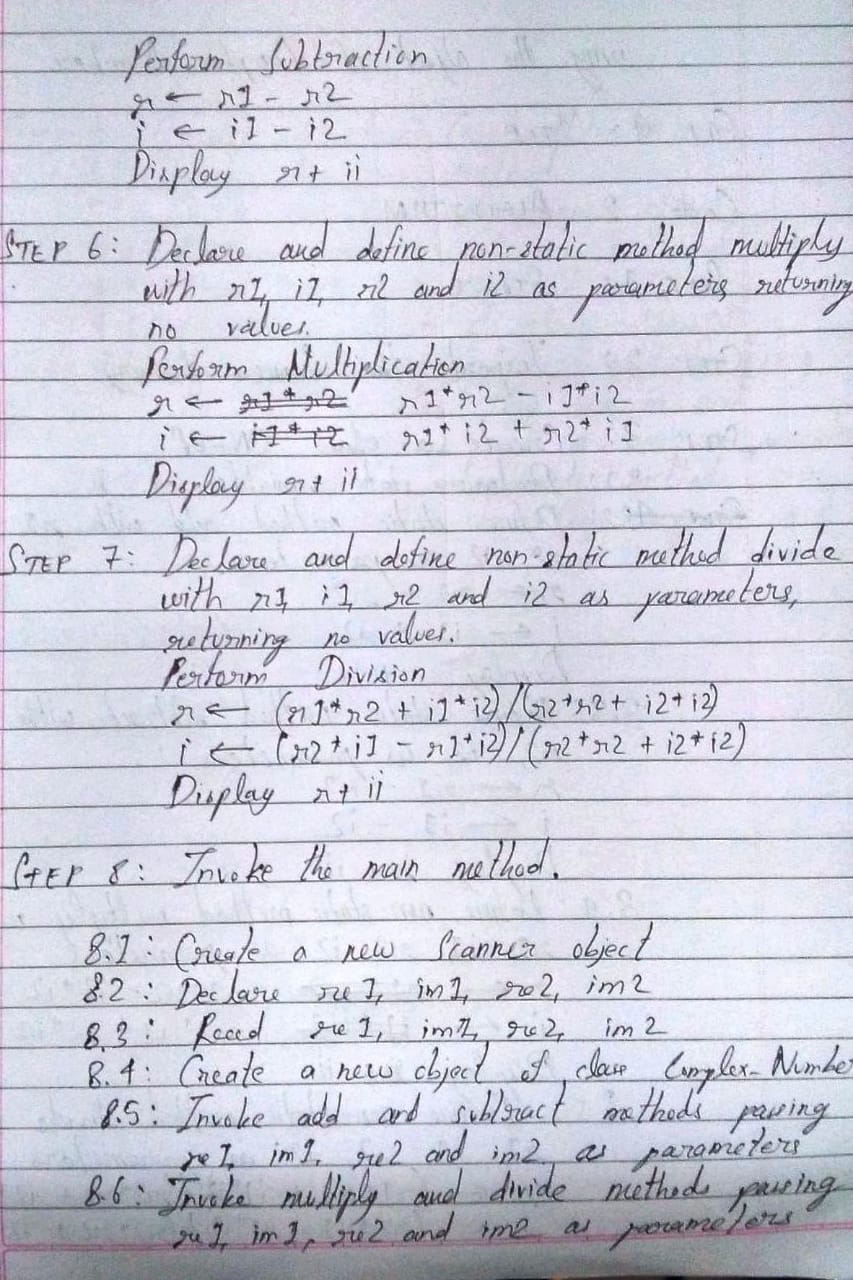 Perform Subtraction
r ← r1 - r2
i ← i1 - i2
Display r + ii
STEP 6: Declare and define non-static method multiply
with r1, i1, r2 and i2 as parameters, returning
no values.
Perform Multiplication
r ← r1*r2 r1*r2 - i1*i2
i ← i1*i2 r1*i2 + r2*i1
Display r + ii
STEP 7: Declare and define non-static method divide
with r1, i1, r2 and i2 as parameters,
returning no values.
Perform Division
r ← (r1*r2 + i1*i2)/(r2*r2 + i2*i2)
i ← (r2*i1 - r1*i2)/(r2*r2 + i2*i2)
Display r + ii
STEP 8: Invoke the main method.
8.1: Create a new Scanner object
8.2: Declare re1, im1, re2, im2
8.3: Read re1, im1, re2, im2
8.4: Create a new object of class Complex_Number
8.5: Invoke add and subtract methods passing
re1, im1, re2 and im2 as parameters
8.6: Invoke multiply and divide methods passing
re1, im1, re2 and im2 as parameters